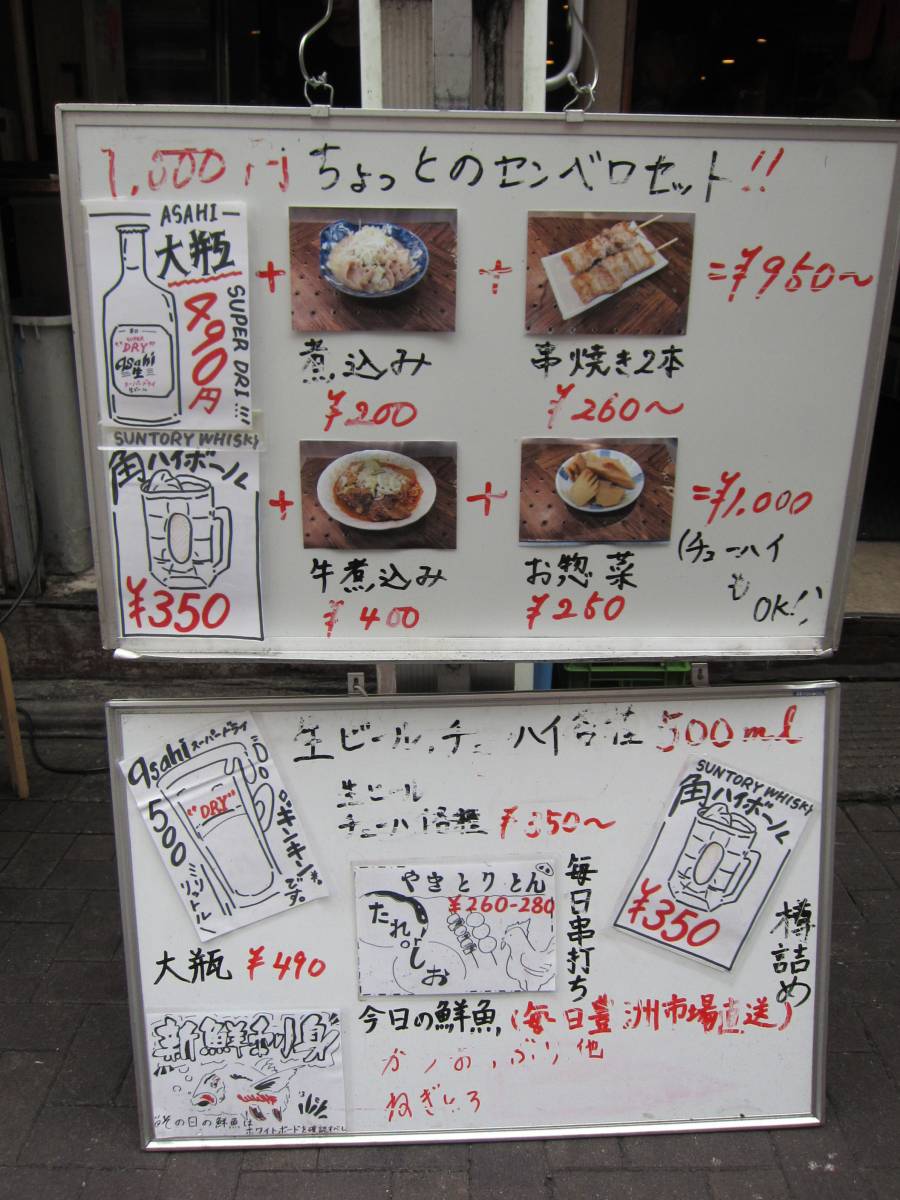 1,000円 ちょっとのセンベロセット!!
ASAHI
大瓶
490円
SUPER DRI!!!
SUPER
"DRY"
asahi
生
+
+
=¥950〜
煮込み
¥200
串焼き2本
¥260〜
SUNTORY WHISKY
角ハイボール
¥350
+
+
=¥1,000
牛煮込み
¥400
お惣菜
¥250
(チューハイ
も
OK!!)
生ビール、チューハイ各種 500ml
asahi スーパードライ
"DRY"
500
ミリリットル
キンキン
です。
生ビール
チューハイ各種 ¥350〜
SUNTORY WHISKY
角ハイボール
¥350
樽詰め
やきとりとん
¥260-280
たれ。
しお
毎日串打ち
大瓶 ¥490
今日の鮮魚(毎日豊洲市場直送)
ぶり 他
新鮮刺身
その日の鮮魚は
ホワイトボードを確認すべし